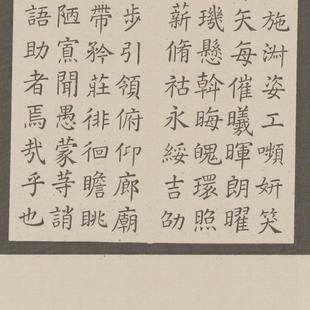 施淑姿工嚬妍笑
矢每催曦暉朗曜
璣懸斡晦魄環照
薪脩祜永綏吉劭
步引領俯仰廊廟
帶矜莊徘徊瞻眺
陋寡聞愚蒙等誚
語助者焉哉乎也